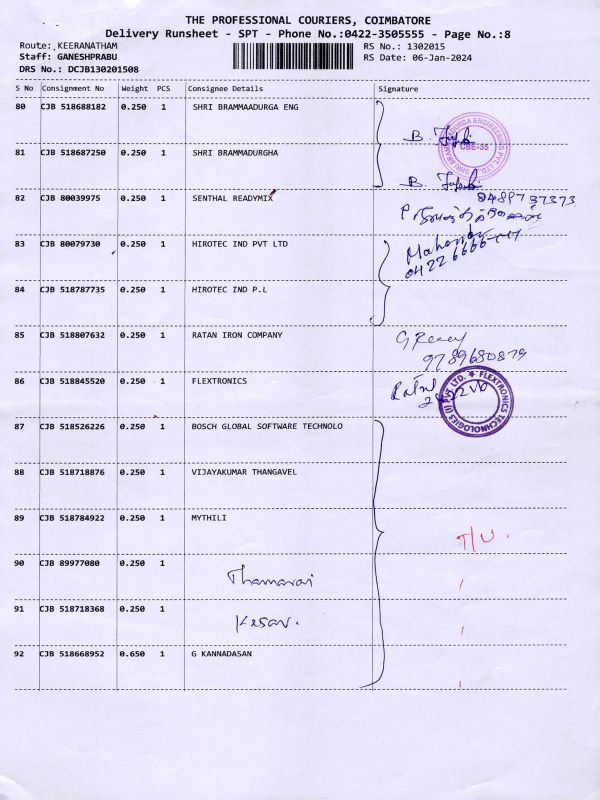 THE PROFESSIONAL COURIERS, COIMBATORE
Delivery Runsheet - SPT - Phone No.:0422-3505555 - Page No.:8
Route: KEERANATHAM
RS No.: 1302015
Staff: GANESHPRABU
RS Date: 06-Jan-2024
DRS No.: DCJB130201508
S No Consignment No Weight PCS Consignee Details Signature
80 CJB 518688182 0.250 1 SHRI BRAMMAADURGA ENG
81 CJB 518687250 0.250 1 SHRI BRAMMADURGHA
CBE-35
82 CJB 80039975 0.250 1 SENTHAL READYMIX
83 CJB 80079730 0.250 1 HIROTEC IND PVT LTD
84 CJB 518787735 0.250 1 HIROTEC IND P.L
85 CJB 518807632 0.250 1 RATAN IRON COMPANY
9789680879
86 CJB 518845520 0.250 1 FLEXTRONICS
FLEXTRONICS TECHNOLOGIES (I) PVT LTD.
87 CJB 518526226 0.250 1 BOSCH GLOBAL SOFTWARE TECHNOLO
88 CJB 518718876 0.250 1 VIJAYAKUMAR THANGAVEL
89 CJB 518784922 0.250 1 MYTHILI
T/U.
90 CJB 89977080 0.250 1 Thamarai
91 CJB 518718368 0.250 1 Kesav.
92 CJB 518668952 0.650 1 G KANNADASAN